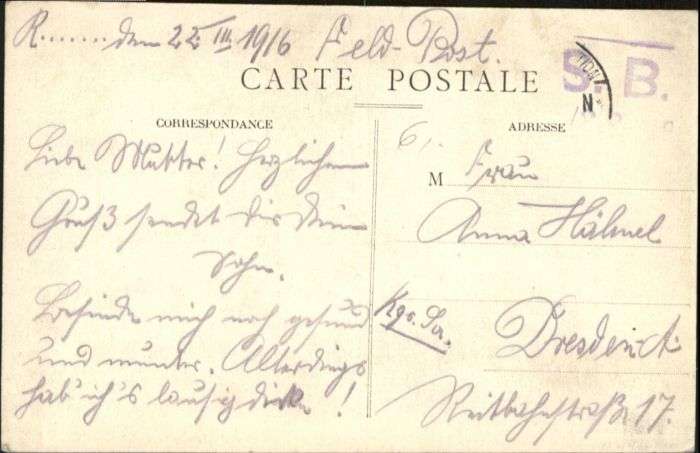 R....... den 22 III 1916 Feld-Post.
S. B.
N
CARTE POSTALE
CORRESPONDANCE
Liebe Mutter! Herzlichen
Gruß sendet dir dein
Sohn.
Befinde mich noch gesund
und munter. Allerdings
hab ich's lausig dicke!
ADRESSE
61.
M Frau
Anna Hähnel
Kgr. Sa.
Dresden A.
Reitbahnstraße 17.